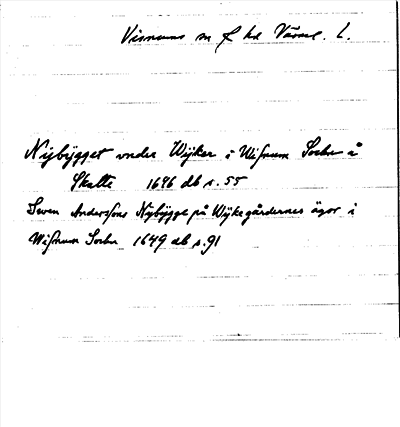 Visnums sn f hd Värml. L.
Nybÿgget under Wÿker i Wisnum Sochn å
Skatte 1646 db s. 55
Swen Anderssons Nybÿgge på Wÿkegårdernes ägor i
Wisnum Sochn 1649 db s. 91